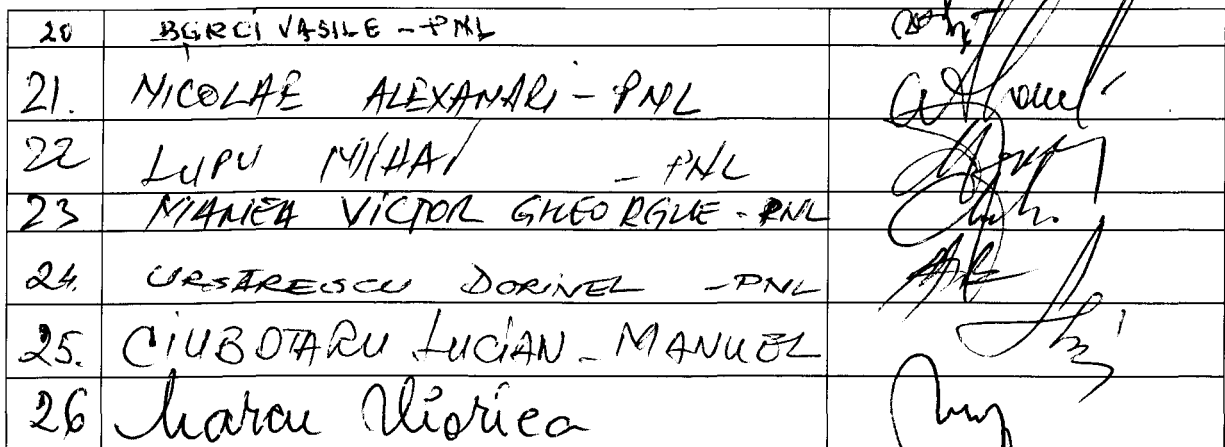 20 BERCI VASILE - PNL
21. NICOLAE ALEXANDRI - PNL
22 LUPU MIHAI - PNL
23 MANEA VICTOR GHEORGHE - PNL
24. URSĂRESCU DORINEL - PNL
25. CIUBOTARU LUCIAN - MANUEL
26 Marcu Viorica